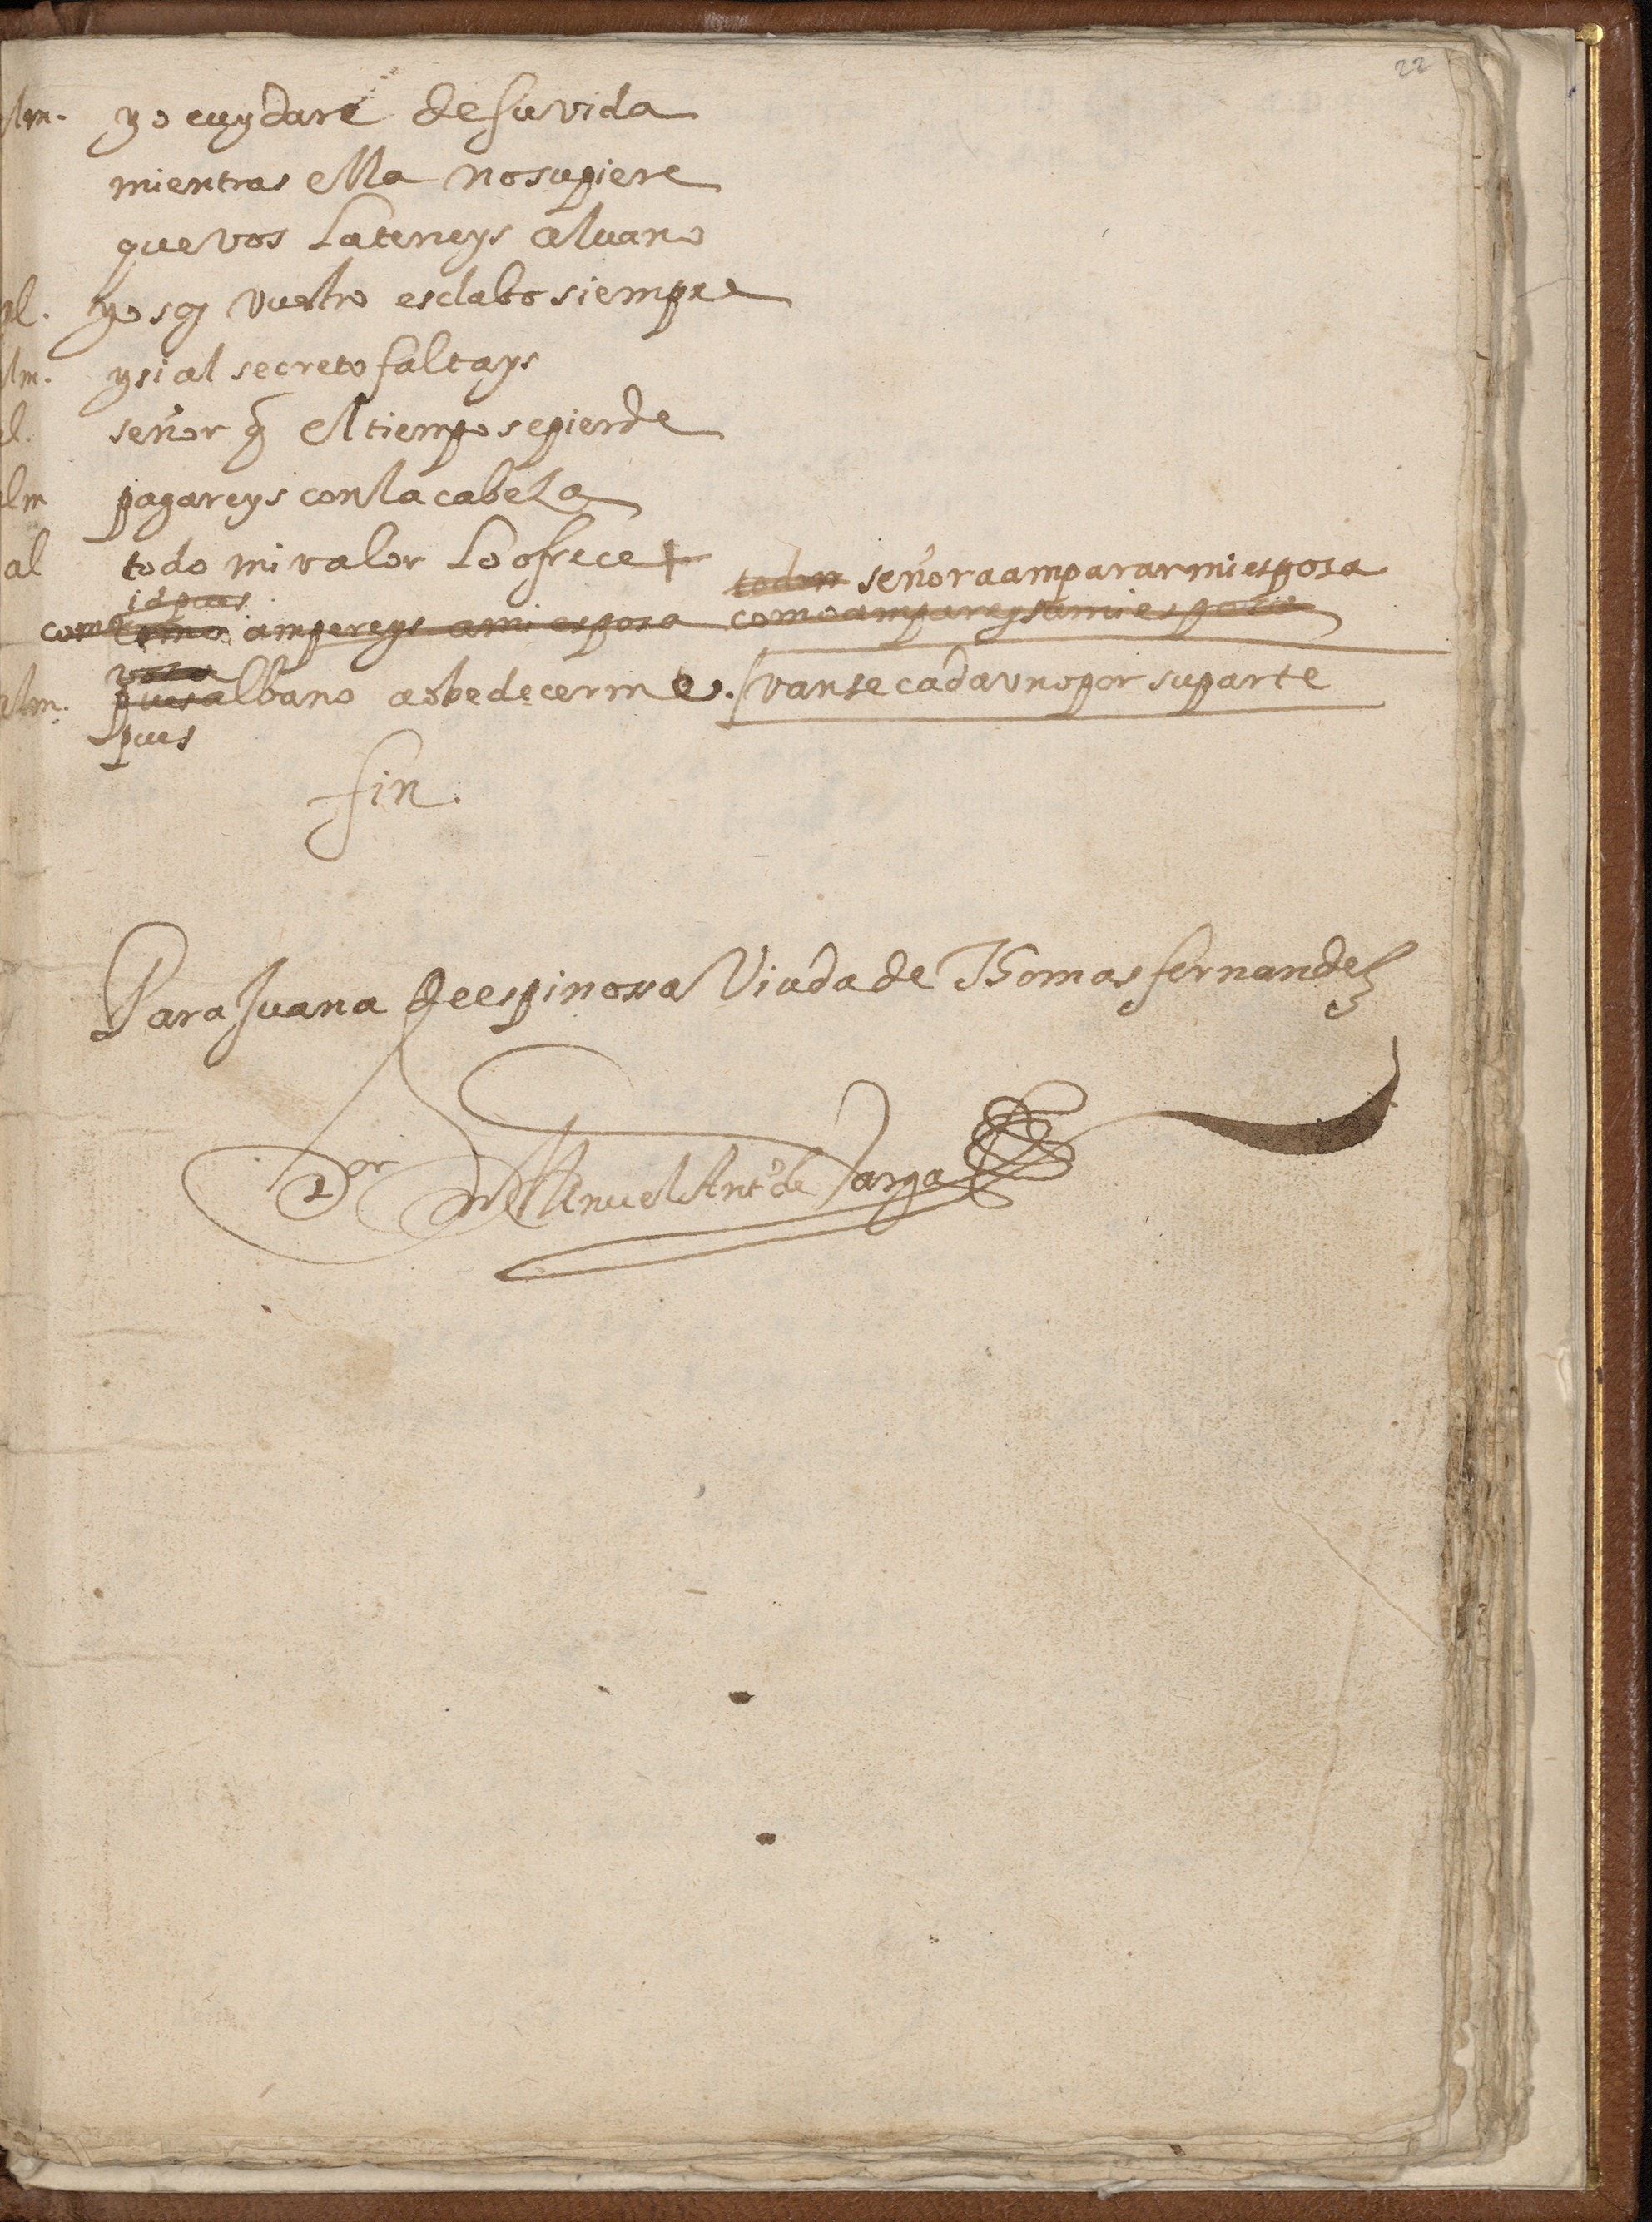 22
alm. yo cuydare de su vida
mientras ella no supiere
que vos la teneys aluano
al. yo soy vuestro esclabo siempre
alm. y si al secreto faltays
al. señor q̃ el tiempo se pierde
alm pagareys con la cabeza
al todo mi valor lo ofrece +
todo señora amparar mi esposa
id pues
como como ampereys a mi esposa como ampareys a mi esposa
alm. pues albano a obedecerme. / vanse cada vno por su parte
pues
fin.
Para Juana de espinossa Viuda de Thomas fernandez
Dor Dn Manuel Anto de Vargas